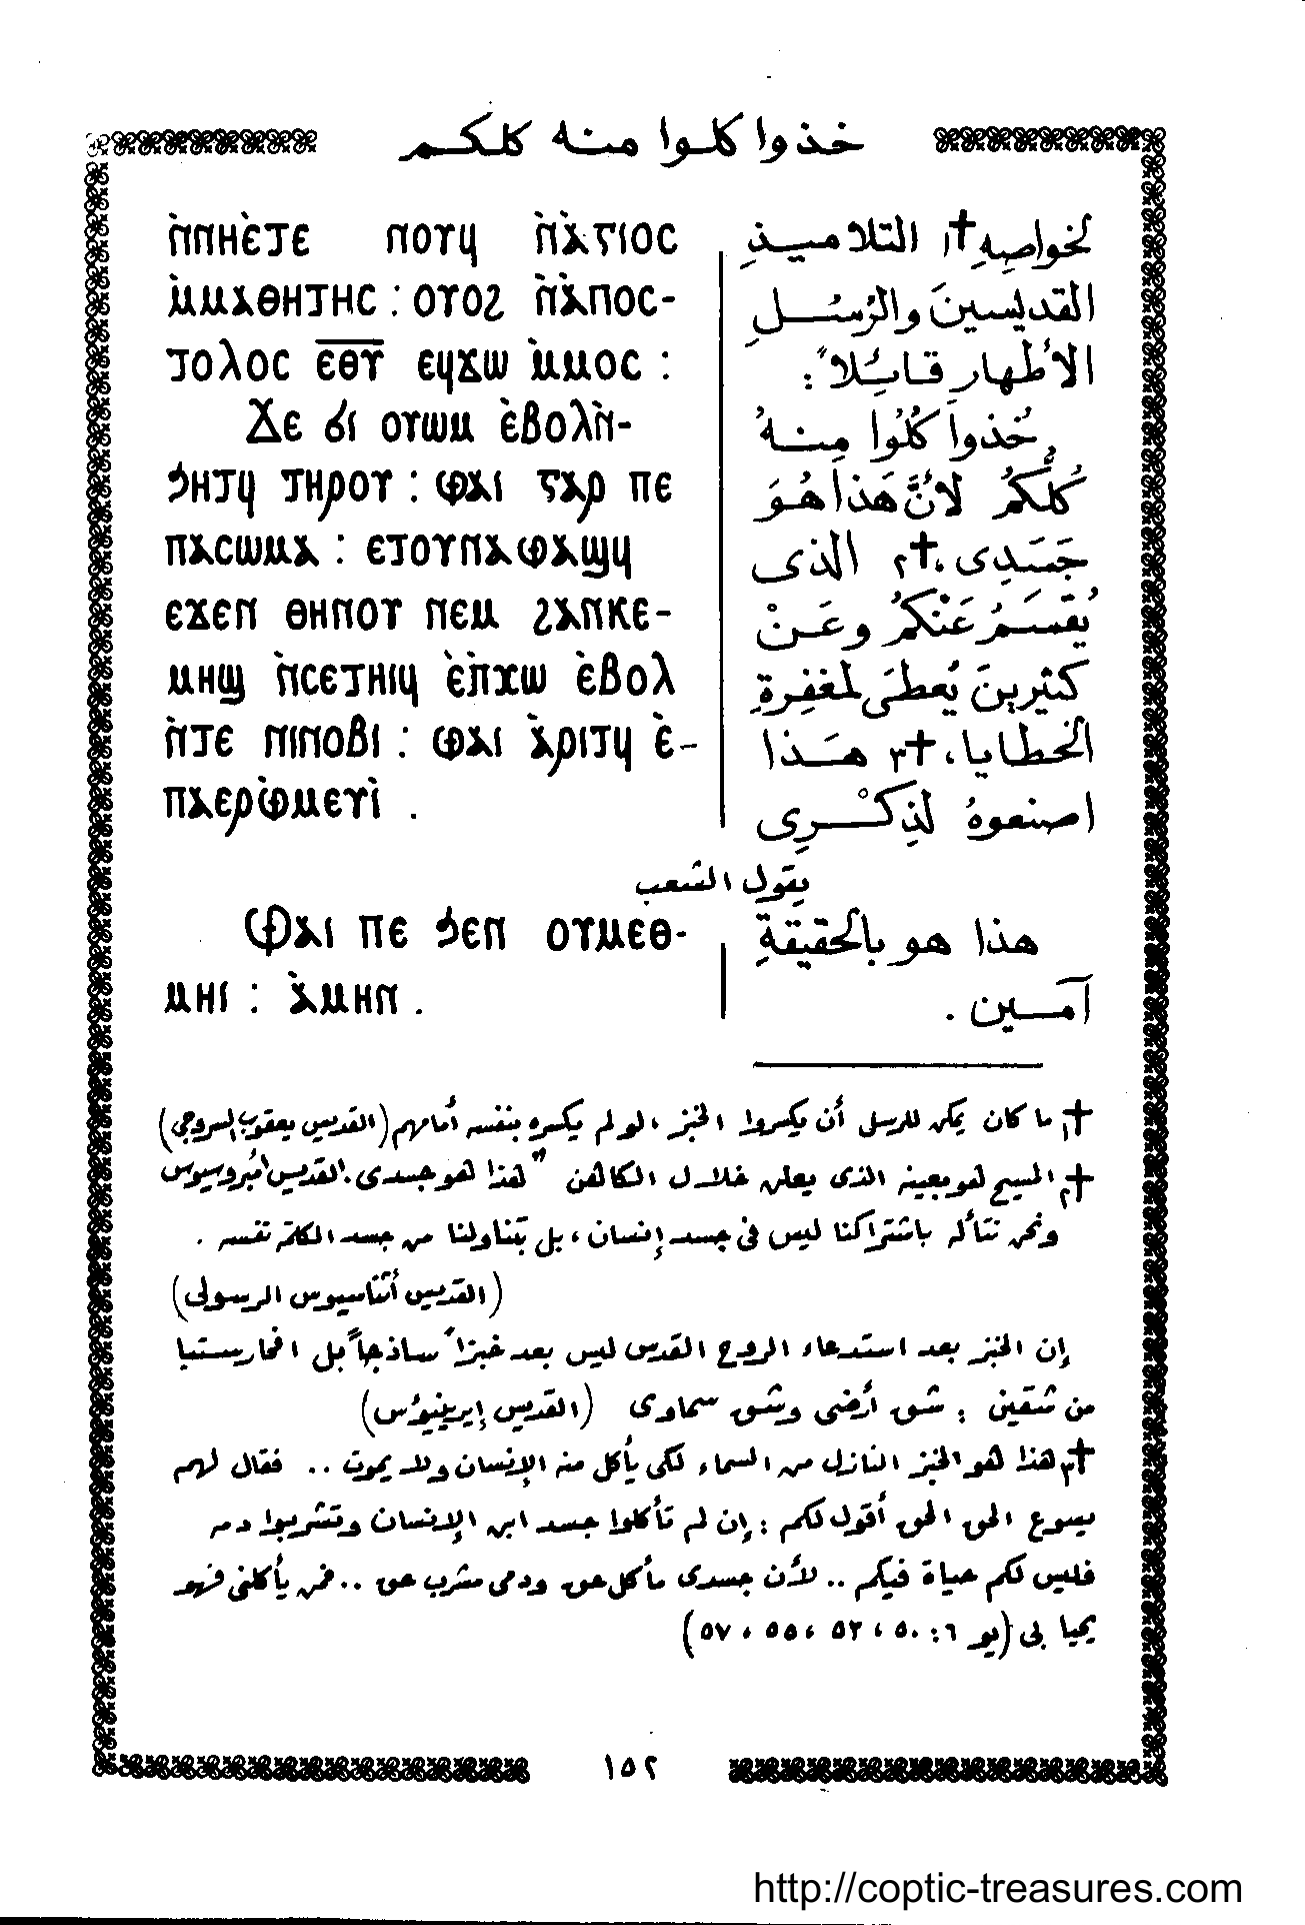 خذوا كلوا منه كلكم
ⲛ̀ⲛⲏⲉ̀ⲧⲉ ⲛⲟⲩϥ ⲛ̀ⲁ̀ⲅⲓⲟⲥ
ⲙ̀ⲙⲁⲑⲏⲧⲏⲥ : ⲟⲩⲟϩ ⲛ̀ⲁ̀ⲡⲟⲥ-
ⲧⲟⲗⲟⲥ ⲉ̅ⲑ̅ⲩ̅ ⲉϥϫⲱ ⲙ̀ⲙⲟⲥ :
Ϫⲉ ϭⲓ ⲟⲩⲱⲙ ⲉ̀ⲃⲟⲗⲛ̀-
ϧⲏⲧϥ ⲧⲏⲣⲟⲩ : ⲫⲁⲓ ⲅⲁⲣ ⲡⲉ
ⲡⲁⲥⲱⲙⲁ : ⲉⲧⲟⲩⲛⲁⲫⲁϣϥ
ⲉϫⲉⲛ ⲑⲏⲛⲟⲩ ⲛⲉⲙ ϩⲁⲛⲕⲉ-
ⲙⲏϣ ⲛ̀ⲥⲉⲧⲏⲓϥ ⲉ̀ⲡ̀ⲭⲱ ⲉ̀ⲃⲟⲗ
ⲛ̀ⲧⲉ ⲛⲓⲛⲟⲃⲓ : ⲫⲁⲓ ⲁ̀ⲣⲓⲧϥ ⲉ̀-
ⲡⲁⲉⲣⲫ̀ⲙⲉⲩⲓ̀ .
لخواصِهِ †١ التلاميـذِ
القديسينَ والرُسُـلِ
الأطهارِ قـائِلاً :
خُذوا كُلُوا مِنـهُ
كُلُّكُمُ لأنَّ هَذا هُـوَ
جَسَدِى، †٢ الذى
يُقسَـمُ عَنْكُمُ وعَـنْ
كثيرينَ يُعطَى لمغفِرةِ
الخطايا، †٣ هَـذا
اصنعوهُ لذِكْـرِى
يقول الشعب
Ⲫⲁⲓ ⲡⲉ ϧⲉⲛ ⲟⲩⲙⲉⲑ-
ⲙⲏⲓ : ⲁ̀ⲙⲏⲛ .
هذا هو بالحقيقةِ
آمـين .
†١ ما كان يمكن للرسل أن يكسروا الخبز ، لو لم يكسره بنفسه أمامهم (القديس يعقوب السروجى)
†٢ المسيح هو بعينه الذى يعلن خلال الكاهن "هذا هو جسدى. القديس امبروسيوس
ونحن نتأله باشتراكنا ليس فى جسد إنسان ، بل بتناولنا من جسد الكلمة نفسه .
(القديس أثناسيوس الرسولى)
إن الخبز بعد استدعاء الروح القدس ليس بعد خبزاً ساذجاً بل افخارستيا
من شقين : شق أرضى وشق سماوى (القديس إيرينيؤس)
†٣ هذا هو الخبز النازل من السماء لكى يأكل منه الإنسان ولا يموت .. فقال لهم
يسوع الحق الحق أقول لكم : إن لم تأكلوا جسد ابن الإنسان وتشربوا دمه
فليس لكم حياة فيكم .. لأن جسدى مأكل حق ودمى مشرب حق .. فمن يأكلنى فهو
يحيا بى (يو ٦: ٥٠ ، ٥٣ ، ٥٥ ، ٥٧)
١٥٢
http://coptic-treasures.com